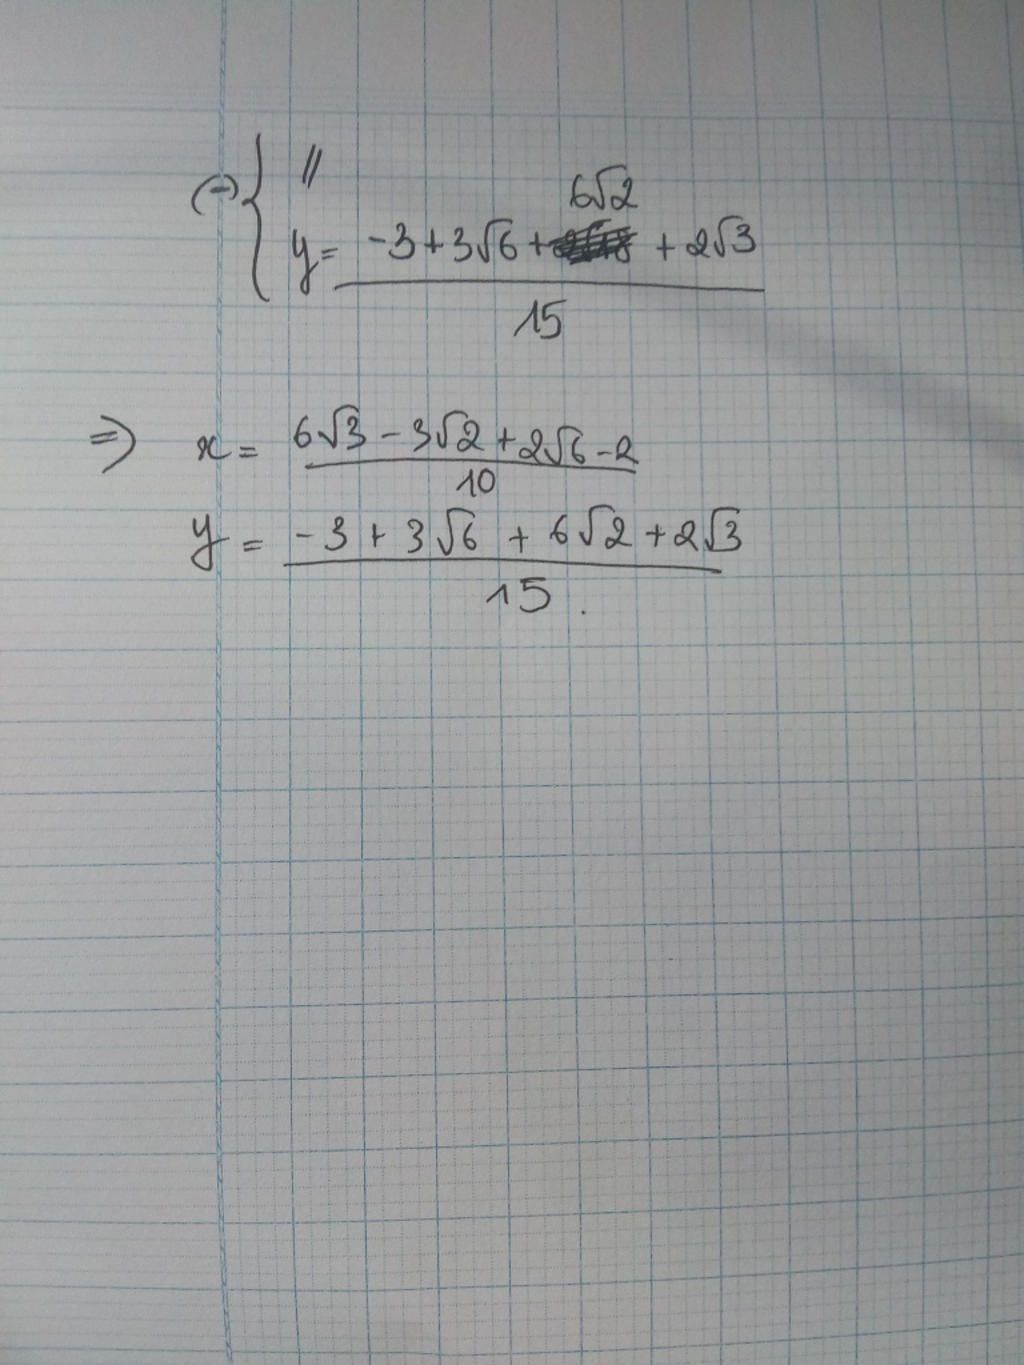 (-) { //
6√2
y = -3 + 3√6 + + 2√3
15
=> x = 6√3 - 3√2 + 2√6 - 2
10
y = -3 + 3√6 + 6√2 + 2√3
15.